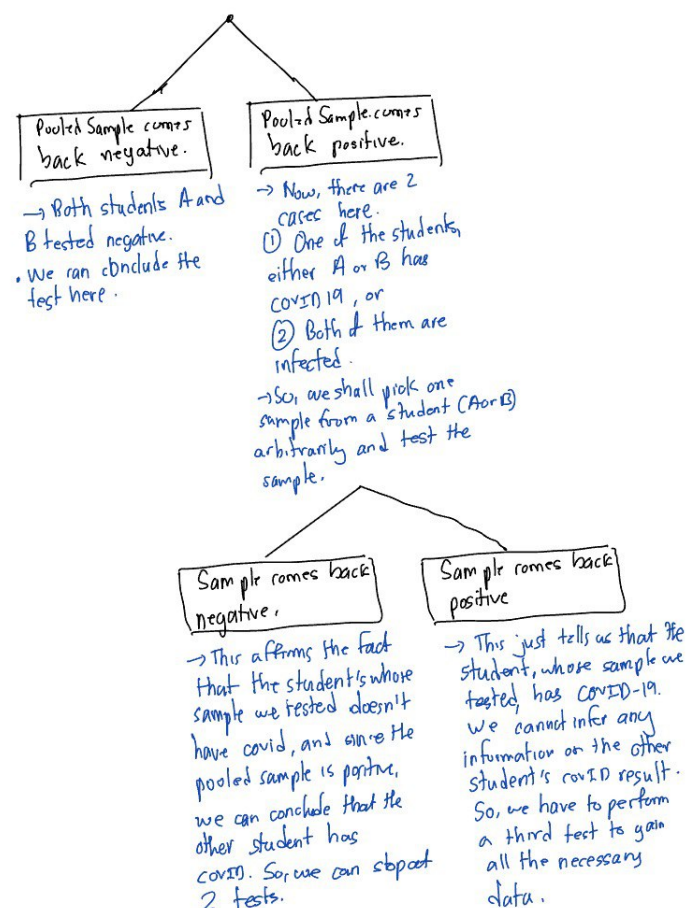 Pooled Sample comes
back negative.
→ Both students A and
B tested negative.
• We can conclude the
test here.
Pooled Sample comes
back positive.
→ Now, there are 2
cases here.
① One of the students,
either A or B has
COVID 19, or
② Both of them are
infected.
→ So, we shall pick one
sample from a student (A or B)
arbitrarily and test the
sample.
Sample comes back
negative.
→ This affirms the fact
that the student's whose
sample we tested doesn't
have covid, and since the
pooled sample is positive,
we can conclude that the
other student has
COVID. So, we can stop at
2 tests.
Sample comes back
positive
→ This just tells us that the
student, whose sample we
tested, has COVID-19.
We cannot infer any
information on the other
student's COVID result.
So, we have to perform
a third test to gain
all the necessary
data.